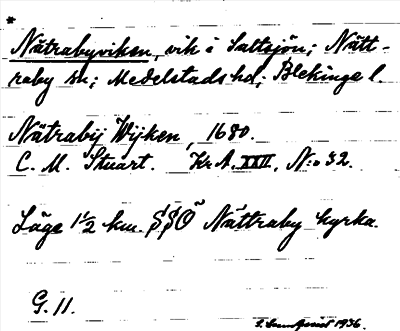 *
Nätrabyviken, vik i Saltsjön; Nätt-
raby sn; Medelstads hd; Blekinge l.
Nätrabij Wijken, 1680.
C. M. Stuart. Kr. A. XXII, N:o 32.
Läge 1½ km. SSÖ Nättraby kyrka.
G. 11.
1936.